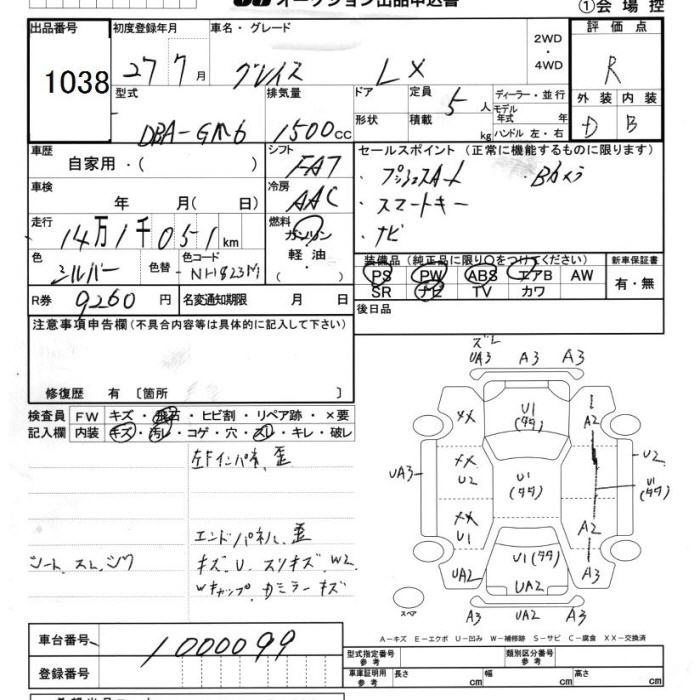 オークション出品申込書
①会場控
出品番号 初度登録年月 車名・グレード 評価点
1038 27 7月 グレイス LX 2WD・4WD R
型式 排気量 ドア 定員 5人 ディーラー・並行 外装 内装
DBA-GM6 1500cc 形状 積載 kg モデル年式 年 ハンドル 左・右 D B
車歴 自家用・( ) シフト FAT セールスポイント (正常に機能するものに限ります)
車検 年 月( 日) 冷房 AAC ・プッシュスタート ・Bカメラ
・スマートキー
走行 14万1千051km 燃料 ガソリン 軽油 ・( ) ・ナビ
色 シルバー 色替 色コード NH823M 装備品 (純正品に限り○をつけてください) 新車保証書
PS PW ABS エアB AW 有・無
SR ナビ TV カワ
R券 9260円 名変通知期限 月 日 後日品
注意事項申告欄 (不具合内容等は具体的に記入して下さい)
修復歴 有 〔箇所 〕
検査員記入欄 FW キズ・飛石・ヒビ割・リペア跡・×要
内装 キズ・汚レ・コゲ・穴・スレ・キレ・破レ
左Fインパネ、歪
エンドパネル、歪
シート、スレ、シワ キズ、U、スリキズ W2
Wキャップ、カミラーキズ
ズレ
UA3 A3 A3
XX U1(タタ) A2
UA3 XX U2 U1(タタ) U2 U1(タタ)
XX U1 A2
UA2 U1(タタ) A3
UA2
スペア A3 UA2 A3
A−キズ E−エクボ U−凹み W−補修跡 S−サビ C−腐食 XX−交換済
車台番号 1000099 型式指定番号 参考 類別区分番号 参考
登録番号 車庫証明用 参考 長さ cm 幅 cm 高さ cm